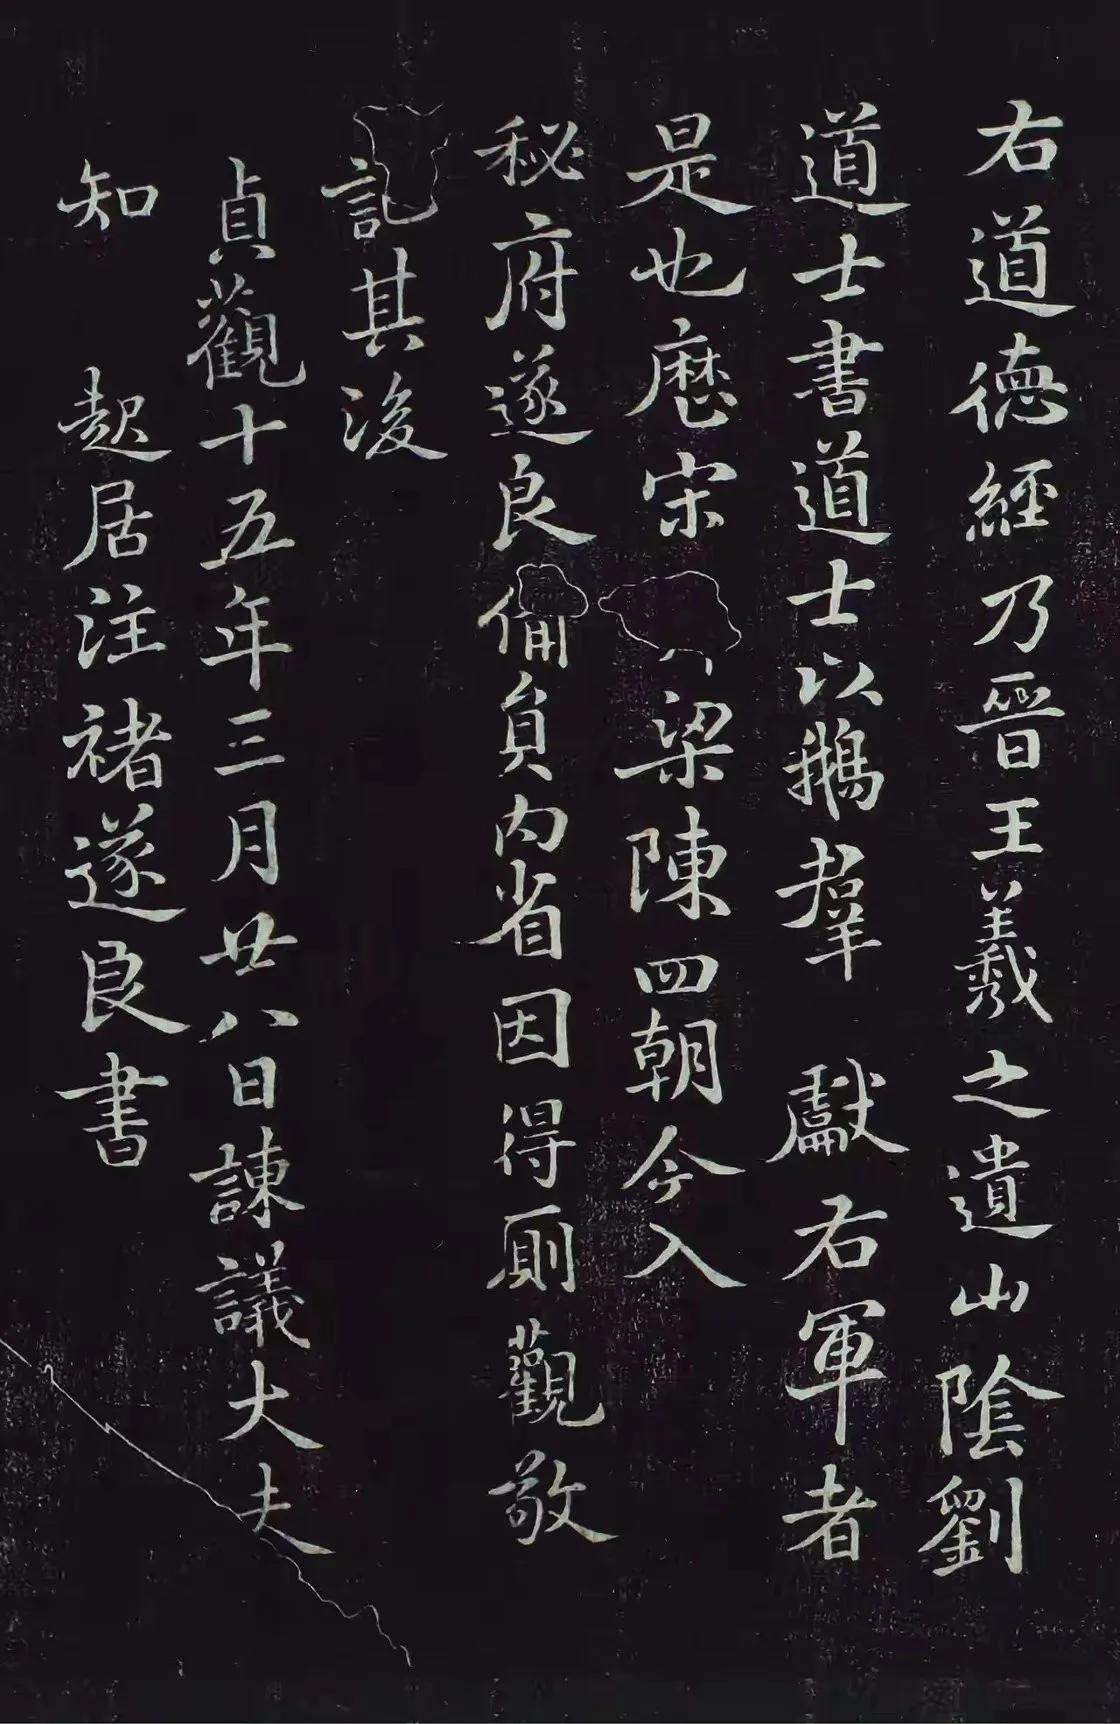 右道德經乃晉王羲之遺山陰劉
道士書道士以鵝羣獻右軍者
是也歷宋梁陳四朝今入
秘府遂良備員內省因得廁觀敬
記其後
貞觀十五年三月廿八日諫議大夫
知起居注褚遂良書